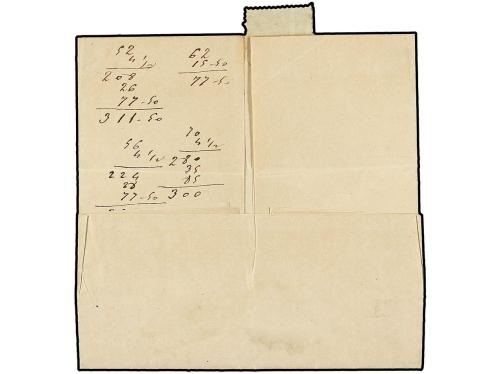 52
4 1/2
208
26
77-50
311-50
62
15-50
77-50
56
4 1/2
224
28
77-50
70
4 1/2
280
35
85
300